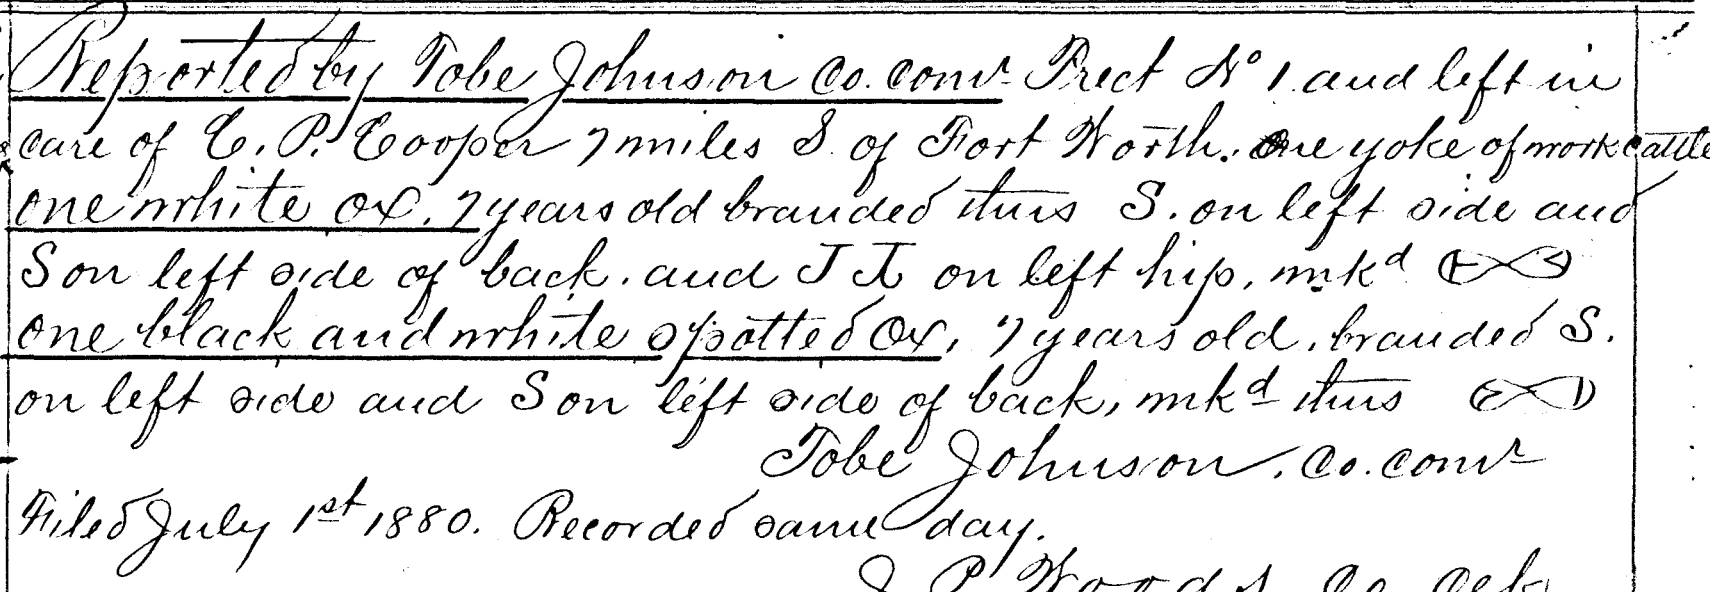 Reported by Tobe Johnson Co. Comr Prect No 1 and left in
care of C. P. Cooper 7 miles S. of Fort Worth. One yoke of work cattle
one white ox, 7 years old branded thus S. on left side and
S on left side of back. and J J on left hip, mkd
one black and white spotted Ox, 7 years old, branded S.
on left side and S on left side of back, mkd thus
Tobe Johnson, Co. Comr
Filed July 1st 1880. Recorded same day.
J. P. Woods Co. Clk